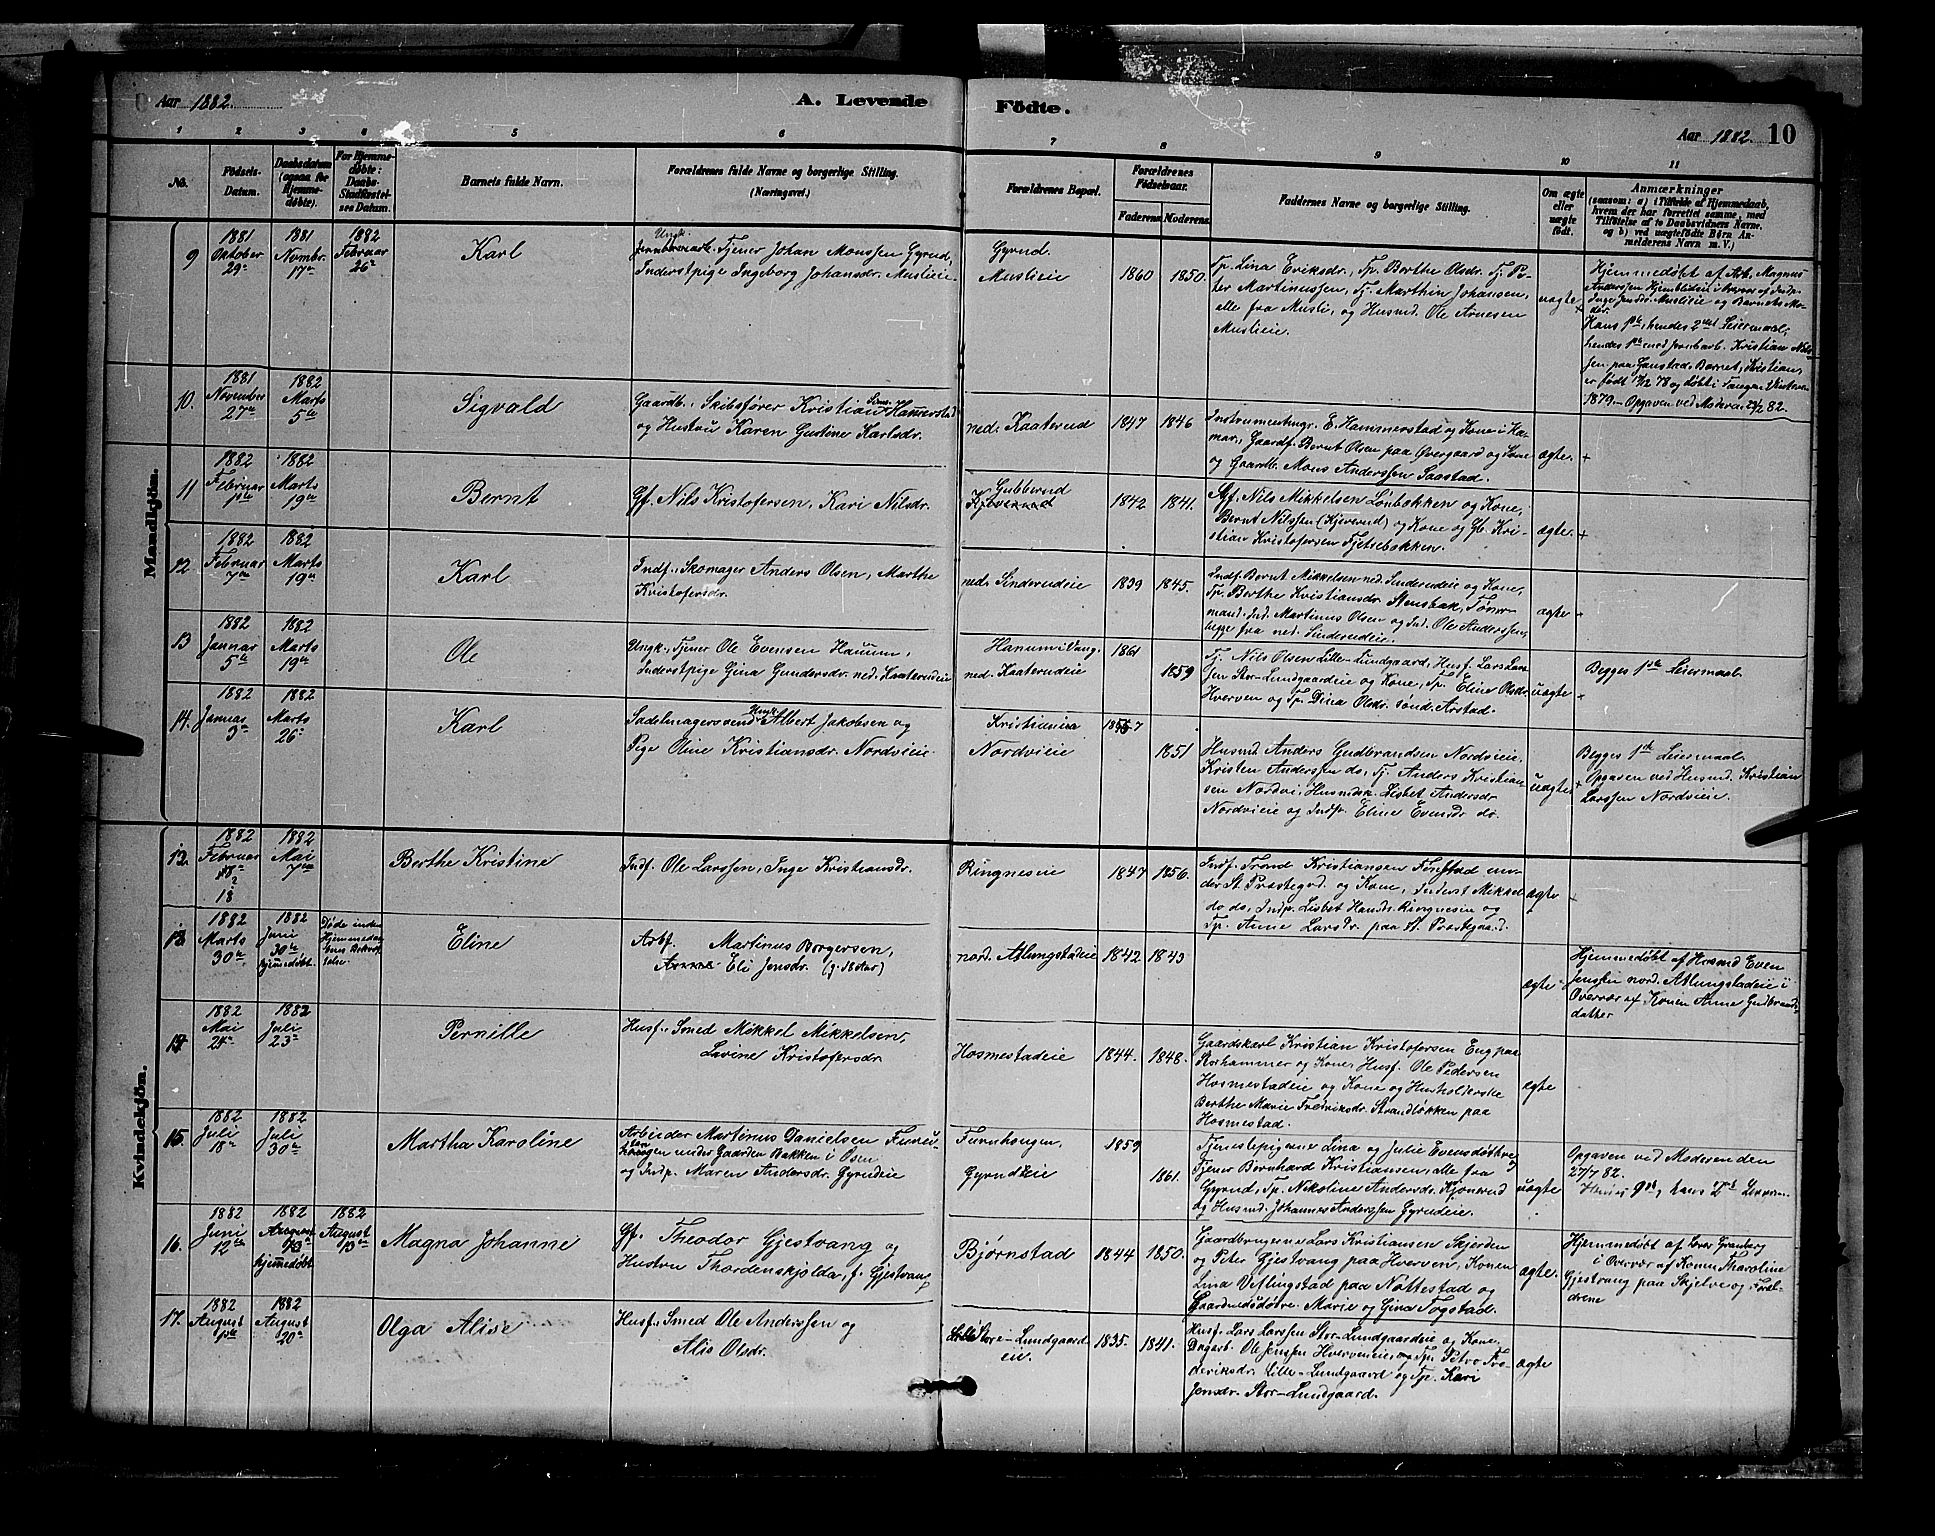 Aar 1882.
A. Levende
Födte.
Aar 1882.
10
1 2 3 4 5 6 7 8 9 10 11
No.
Födsels-
Datum.
Daabsdatum
(ogsaa for
Hjemme-
døbte).
For Hjemme-
døbte:
Daabs-
Stadfæstel-
ses Datum.
Barnets fulde Navn.
Forældrenes fulde Navne og borgerlige Stilling.
(Næringsvei.)
Forældrenes Bopæl.
Forældrenes
Födselsaar.
Faderens
Moderens.
Faddernes Navne og borgerlige Stilling.
Om ægte
eller
uægte
født.
Anmærkninger
(saasom: a) i Tilfælde af Hjemmedaab,
hvem der har forrettet samme, med
Tilföielse af to Daabsvidners Navne,
og b) ved uægtefödte Börn An-
melderens Navn m. V.)
Mandkjön.
9
1881
Oktober
29de
1881
Novmbr.
17de
1882
Februar
26de
Karl
Ungk.
Tjener Johan Monssen Gyrud,
Inderstpige Ingeborg Johansdr. Muslieie
Gyrud.
Muslieie
1860
1850.
Tp. Lina Eriksdr., Tp. Berthe Olsdr. Tj. Pe-
ter Martinussen, Tj. Marthin Johansen,
alle fra Musli, og Husmd. Ole Arnesen
Muslieie.
uægte
Hjemmedøbt af Arb. Magnus
Anderssen
Muslieie og Barnets Mo-
der.
Hans 1ste, hendes 2det Leiermaal,
hendes 1ste med Jernbarb. Kristian Nils-
sen paa Barnet, Kristian,
er født 17/12 78 og døbt i Tangen Vinteren
1879. - Opgaven ved Moderen 26/2 82.
10.
1881
November
27de
1882
Marts
5te
Sigvald
Gaardb., Skibsfører Kristian Sims. Hammerstad
og Hustru Karen Gustine Karlsdr.
ned. Kaaterud
1847
1846
Instrumentmgr. E. Hammerstad og Kone i Ha-
mar, Gaardf. Bernt Olsen paa Overgaard og Kone
og Gaardb. Mons Anderssen Saastad.
ægte.
11
1882
Februar
1ste
1882
Marts
19de
Bernt
Gf. Nils Kristofersen, Kari Nilsdr.
Gubberud
Kjeverud
1842
1841.
Gf. Nils Mikkelsen Lønbakken og Kone,
Bernt Nilssen (Kjeverud) og Kone og Gb. Kri-
stian Kristofersen Fjetsebakken.
ægte.
12.
1882
Februar
7de
1882
Marts
19de
Karl
Indf., Skomager Anders Olsen, Marthe
Kristofersdr.
ned. Sinderudeie
1839
1845.
Indf. Bernt Mikkelsen ned. Sinderudeie og Kone,
Tp. Berthe Kristiansdr. Stensbak, Tømr-
mand, Ind. Martinus Olsen og Ind. Ole Anderssen,
begge fra ned. Sinderudeie.
ægte
13
1882
Januar
5te
1882
Marts
19de
Ole
Ungk., Tjener Ole Evensen Hanum,
Inderstpige Gina Gundersdr. ned. Kaaterudeie
Hanum i Vang.
ned. Kaaterudeie
1861
1859
Tj. Nils Olsen Lille-Lundgaard, Husf. Lars Lars-
sen Stor-Lundgaardeie og Kone, Tp. Eline Olsdr.
Hverven og Tp. Dina Olsdr. sønd. Arstad.
uægte
Begges 1ste Leiermaal.
14.
1882
Januar
9de
1882
Marts
26de
Karl
Sadelmagersvend Ungk. Albert Jakobsen og
Pige Oline Kristiansdr. Nordvieie
Kristiania
Nordvieie
1857
1851
Husmd. Anders Gudbrandsen Nordvieie,
Kristen Anderssen do, Tj. Anders Kristian-
sen Nordvi, Husmdsk. Lisbet Andersdr.
Nordvieie og Indp. Eline Evensdr. do.
uægte
Begges 1ste Leiermaal.
Opgaven ved Husmd. Kristian
Larssen Nordvieie.
Kvindekjön.
12.
1882
Februar
18
1882
Mai
7de
Berthe Kristine
Indf. Ole Larssen, Inge Kristiansdr.
Ringneseie
1847
1856.
Indf. Trond Kristiansen Finstad un-
der St. Præstegrd. og Kone, Inderst Mikkel
do do, Indp. Lisbet Hansdr. Ringneseie og
Tp. Anne Larsdr. paa St. Præstegaard.
ægte
13.
1882
Marts
30te
1882
Juni
30te
hjemmedøbt.
Døde inden
Hjemmedaa-
bens Bekræf-
telse.
Eline
Arbf. Martinus Borgersen,
Eli Jensdr.
nord. Atlungstadeie
1842
1843
ægte
Hjemmedøbt af Husmd Even
Jenssen nord. Atlungstadeie i
Overvær af Konen Anne Gudbrands-
datter
14.
1882
Mai
24de
1882
Juli
23de
Pernille
Husf., Smed Mikkel Mikkelsen,
Lovine Kristofersdr.
Hosmestadeie
1844.
1848.
Gaardskarl Kristian Kristofersen Eng paa
Storhammer og Kone, Husf. Ole Pedersen
Hosmestadeie og Kone og Husholderske
Berthe Marie Fredriksdr. Strandløkken paa
Hosmestad.
ægte
15.
1882
Juli
18de
1882
Juli
30te
Martha Karoline
Arbeider Martinus Danielsen Furu-
haugen under Gaarden Bakken i Osen
og Indp. Maren Andersdr. Gyrudeie
Furuhougen,
Gyrudeie
1859
1861.
Tjenestepigerne Lina og Julie Evensdøttre,
Tjener Bernhard Kristiansen, alle fra
Gyrud, Tp. Nikoline Andersdr. Kjonerud
og Husmd. Johannes Anderssen Gyrudeie.
uægte
Opgaven ved Moderen den
27/7 82.
hans 2det Leierm.
16.
1882
Juni
12te
1882
August
13
hjemmedøbt
1882
August
13de
Magna Johanne
Gf. Theodor Gjestvang og
Hustru Thordenskjolda, f. Gjestvang
Bjørnstad
1844
1850.
Gaardbrugerne Lars Kristiansen Skjerden
og Peter Gjestvang paa Hverven, Konen
Lina Vetlingstad paa Nøttestad og
Gaardmdsdøtre. Marie og Gina Togstad.
ægte.
Hjemmedøbt af Lærer Granberg
i Overvær af Konen Tharoline
Gjestvang paa Skjelve og Foræl-
drene
17.
1882
August
1ste
1882
August
20de
Olga Alise
Husf., Smed Ole Anderssen og
Alis Olsdr.
Store-Lundgaard-
eie.
1835.
1841.
Husf. Lars Larssen Stor-Lundgaardeie og Kone,
Dagarb. Ole Jenssen Hverveneie, Tp. Petra Fre-
deriksdr. Lille-Lundgaard og Tp. Kari
Jensdr. Stor-Lundgaard.
ægte